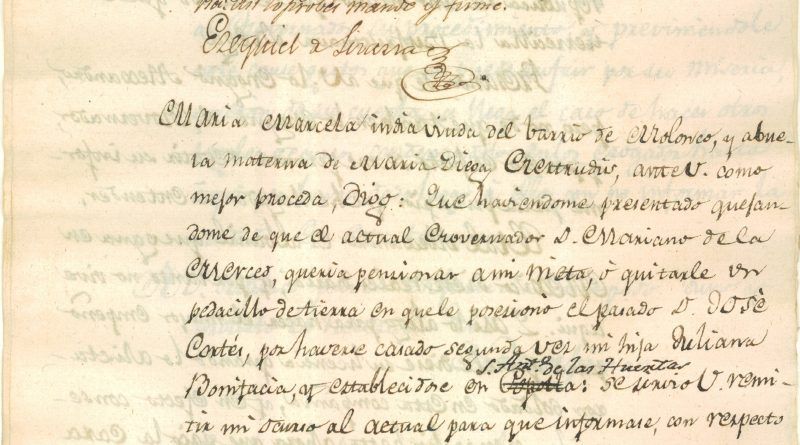 lo probei mande y firme.
Ezequiel de Lizarza
Maria Marcela india viuda del barrio de Molonco, y abue-
la materna de Maria Diega Gertrudis, ante V. como
mejor proceda, Digo: Que haviendome presentado quejan-
dome de que el actual Governador D. Mariano de la
Merced, queria pencionar a mi nieta, ó quitarle un
pedacillo de tierra en que le posesionó el pasado D. José
Cortés, por haverse casado segunda vez mi hija Juliana
S. Ant.o de las Huertas
Bonifacia, y establecidose en : se sirvio V. remi-
tir mi ocurso al actual para que informase, con respecto